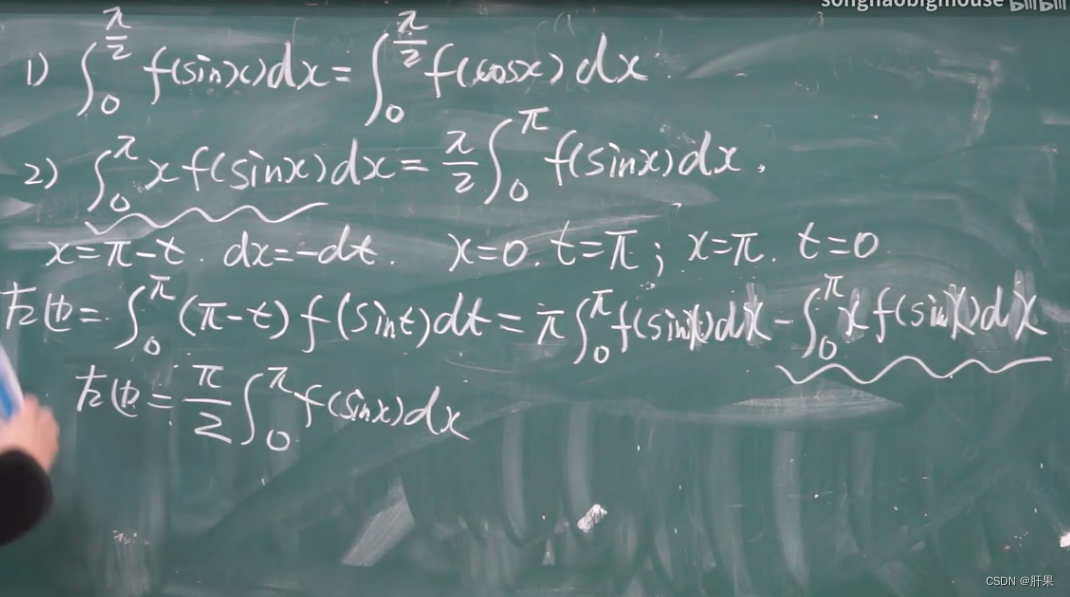 songhaobighouse bilibili
1) ∫₀^(π/2) f(sinx)dx = ∫₀^(π/2) f(cosx)dx
2) ∫₀^π x f(sinx)dx = π/2 ∫₀^π f(sinx)dx.
x=π-t. dx=-dt. x=0. t=π; x=π. t=0
左边= ∫₀^π (π-t) f(sint)dt = π∫₀^π f(sinx)dx - ∫₀^π x f(sinx)dx
左边= π/2 ∫₀^π f(sinx)dx
CSDN @肝果